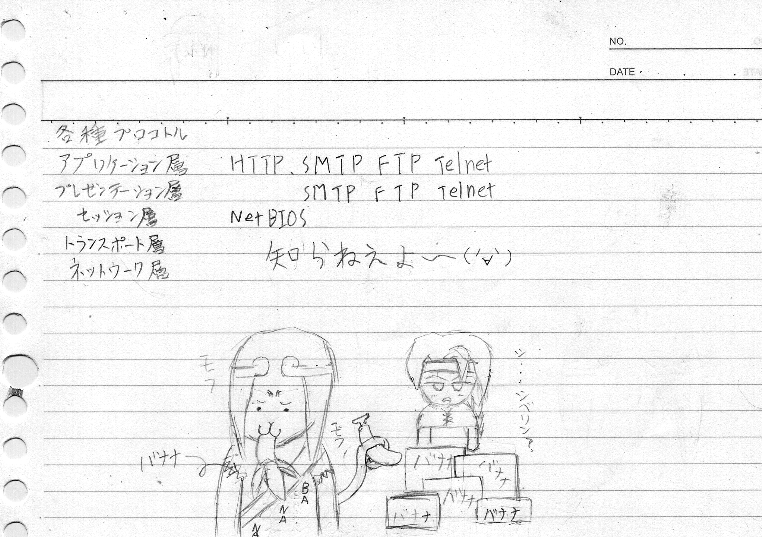 NO.
DATE
各種プロコトル
アプリケーション層 HTTP、SMTP FTP Telnet
プレゼンテーション層 SMTP FTP Telnet
セッション層 NetBIOS
トランスポート層
知らねえよ〜('∀')
ネットワーク層
モフ
シ・・・シベリン?
モフ
バナナ
バナナ
バナナ
バナナ
バナナ
バナナ
BA
NA
NA